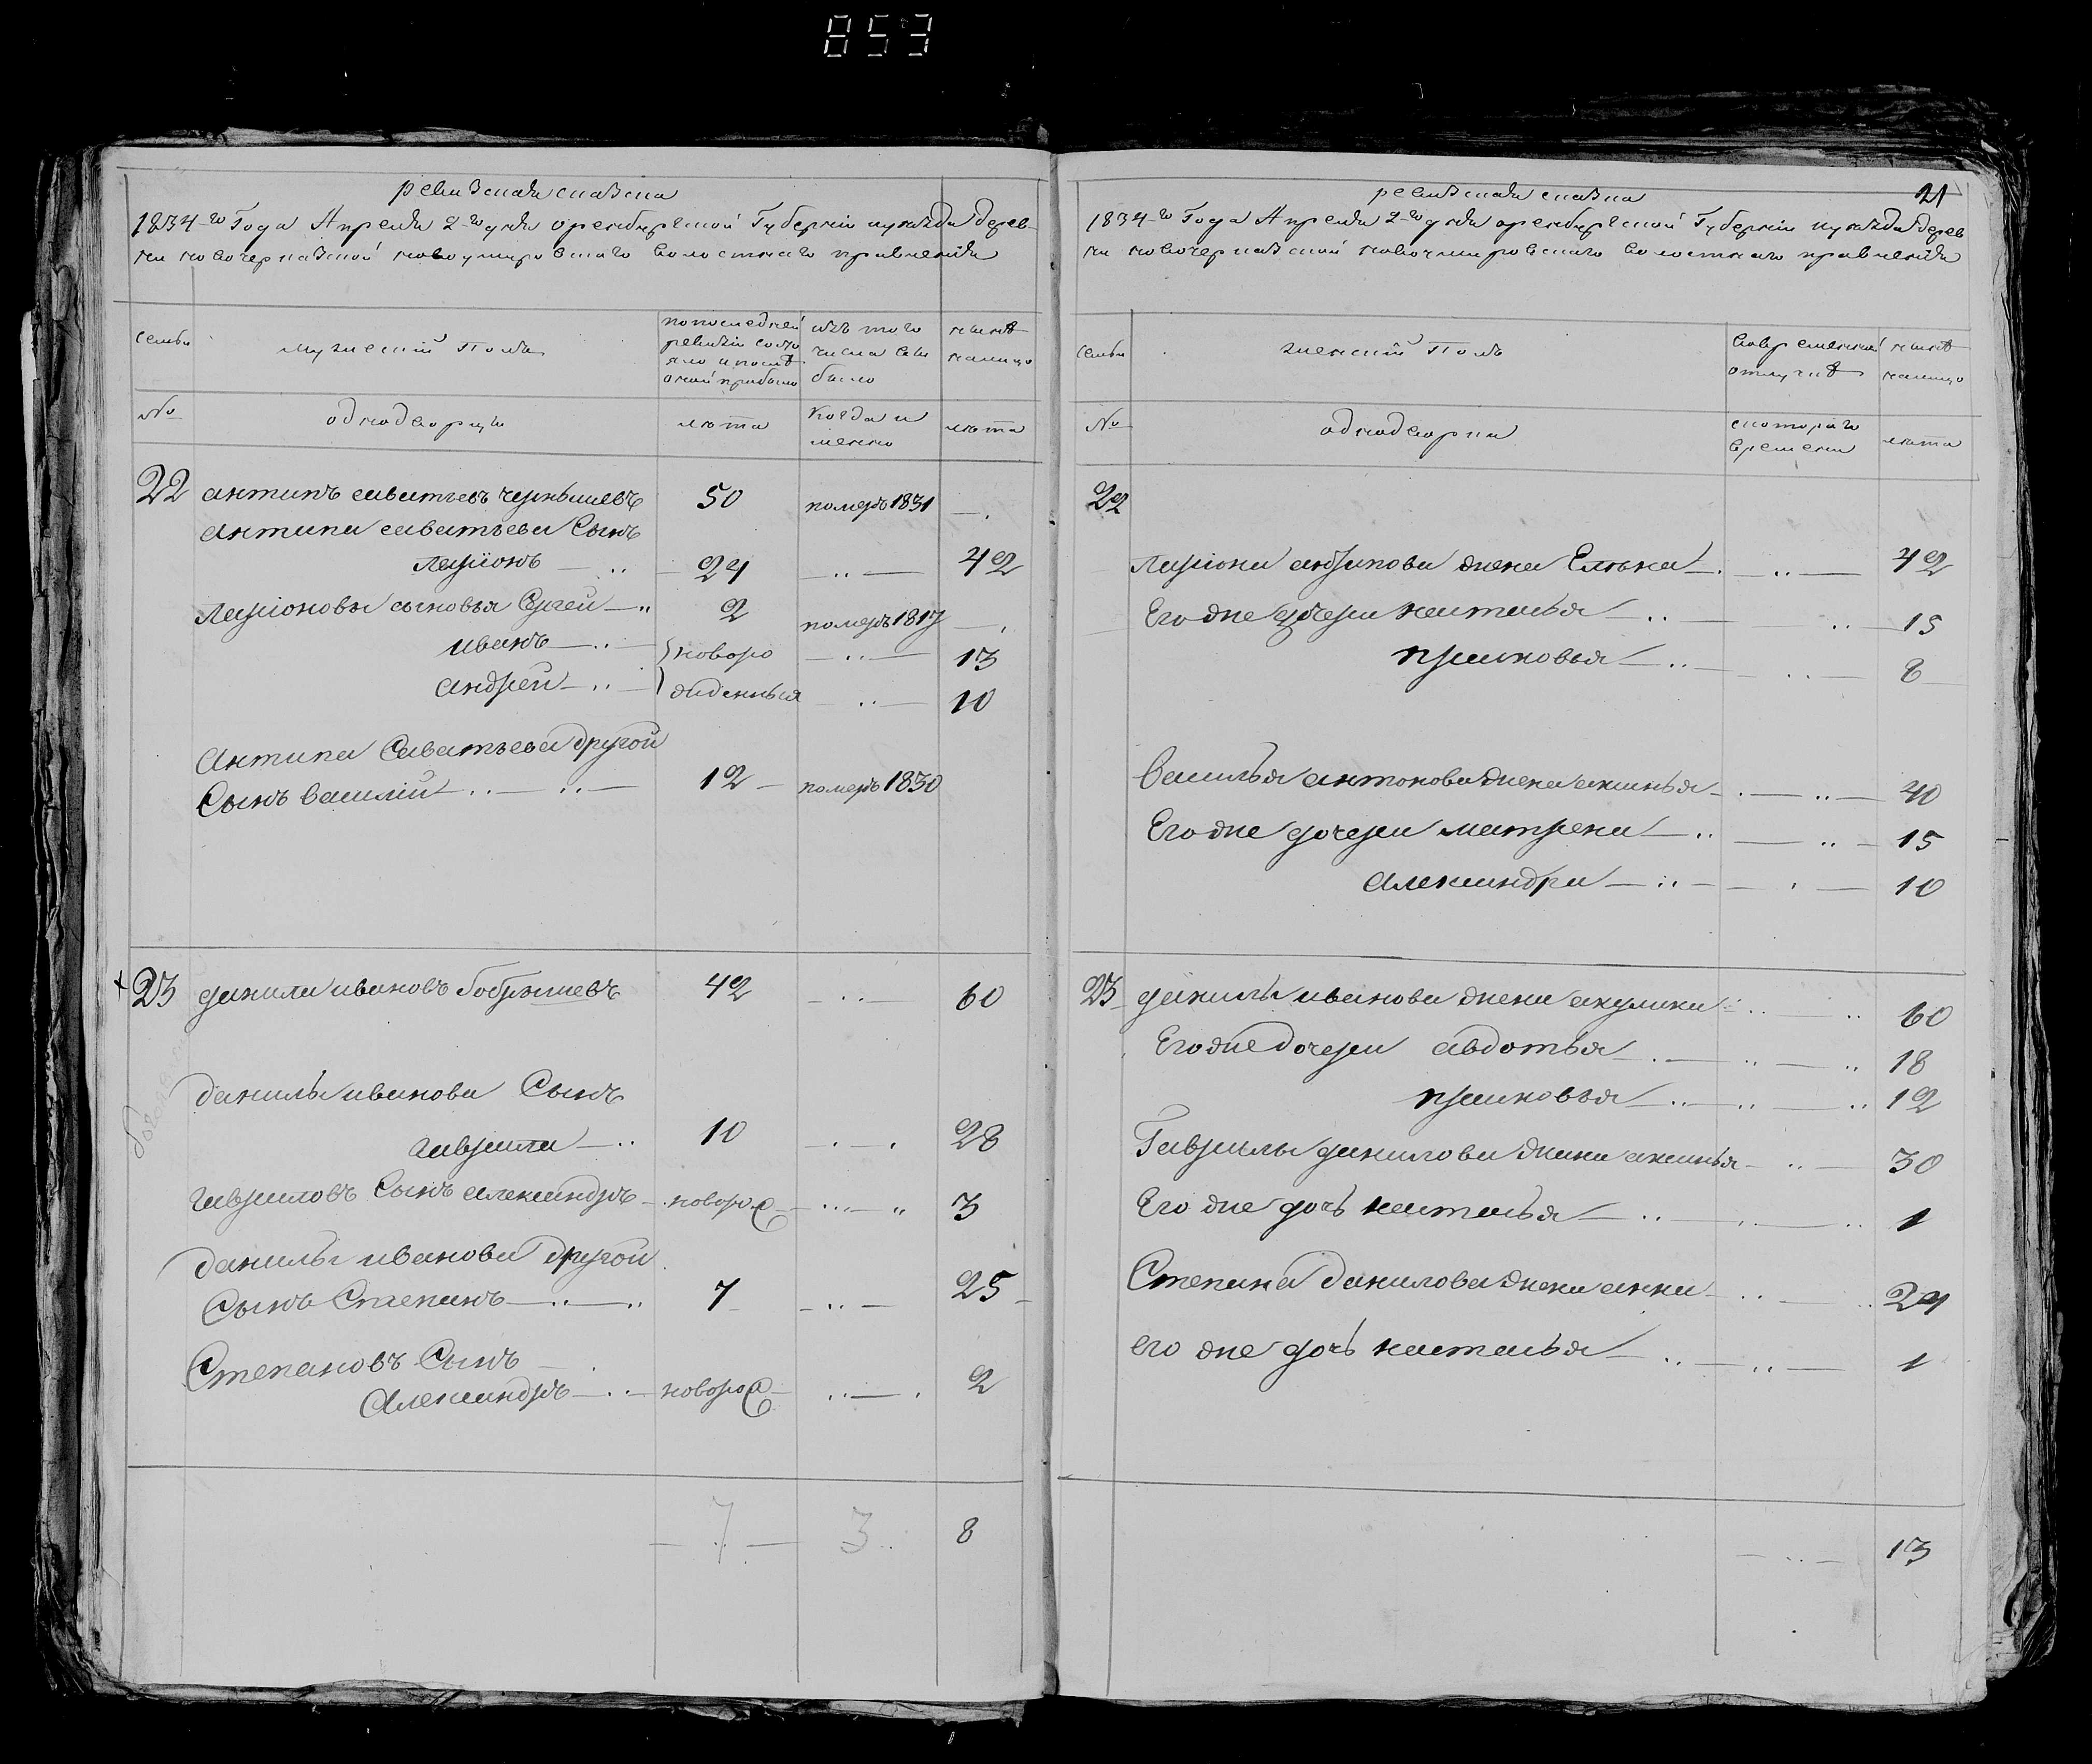 853
ревизская сказка
1834-го Года Апреля 2-го дня оренбургской Губернии уезда дерев
ни новочеркаской новоумировского волостнаго правления
семьи
мужеский Полъ
попоследней ревизіи состояло и после оной прибыло
изъ того числа выбыло
ныне налицо
№
однодворцы
лета
Когда именно
лета
22 антипъ саватеевъ чернышевъ 50 померъ 1831
Антипа саватьева Сынъ
Ларіонъ 24 42
Ларіоновы сыновья Сергей 2 померъ 1817
иванъ новоро 13
андрей жденныя 10
Антипа Саватьева другой
Сынъ василій 12 померъ 1830
23 данила ивановъ 42 60
данилы иванова Сынъ
гаврила 10 28
гавриловъ Сынъ александръ новорож 3
данилы иванова другой
Сынъ Степанъ 7 25
Степановъ Сынъ
Александръ новорож 2
7 3 8
ревизская сказка 21
1834-го Года Апреля 2-го дня оренбургской Губернии уезда дерев
ни новочеркаской новоумировского волостнаго правления
семьи
женский Полъ
во временной отлучке
ныне налицо
№
однодворки
скоторого времени
лета
22
Лариона антипова жена Елена 42
Его же дочери наталья 15
прасковья 8
Василья антонова жена аксинья 40
Его же дочери матрена 15
Александра 10
23 данилы иванова жена акулина 60
Его же дочери авдотья 18
прасковья 12
Гаврилы данилова жина аксинья 30
Его же дочь наталья 1
Степана данилова жена анна 24
его же дочь наталья 1
13